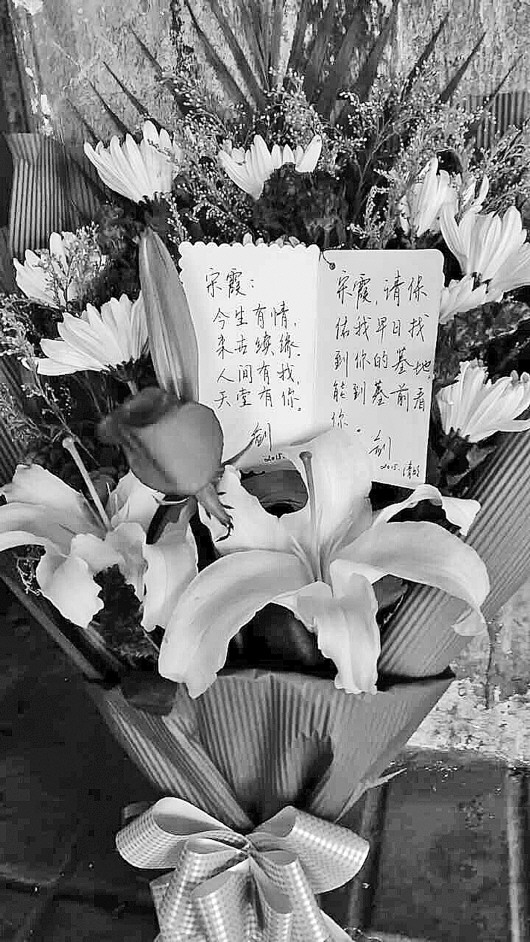 宋霞：
今生有情，
来世续缘。
人间有我，
天堂有你。
剑
2015.
宋霞，请保
佑我早日找
到你的墓地。
能到墓前看
你。
剑
2015.清明